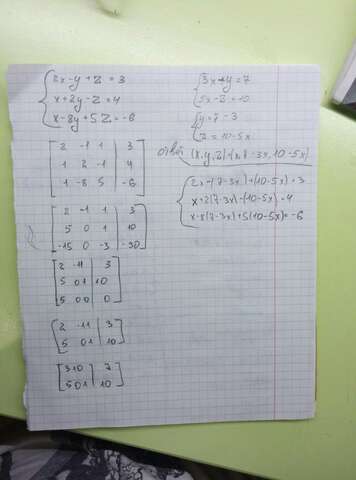 2x-y+z=3
x+2y-z=4
x-8y+5z=-6
2 -1 1 | 3
1 2 -1 | 4
1 -8 5 | -6
2 -1 1 | 3
5 0 1 | 10
-15 0 -3 | -30
2 -1 1 | 3
5 0 1 | 10
5 0 0 | 0
2 -1 1 | 3
5 0 1 | 10
3 1 0 | 7
5 0 1 | 10
3x+y=7
5x-z=10
y=7-3
z=10-5x
ответ (x,y,z)=(x,7-3x,10-5x)
2x-(7-3x)+(10-5x)=3
x+2(7-3x)-(10-5x)=4
x-8(7-3x)+5(10-5x)=-6